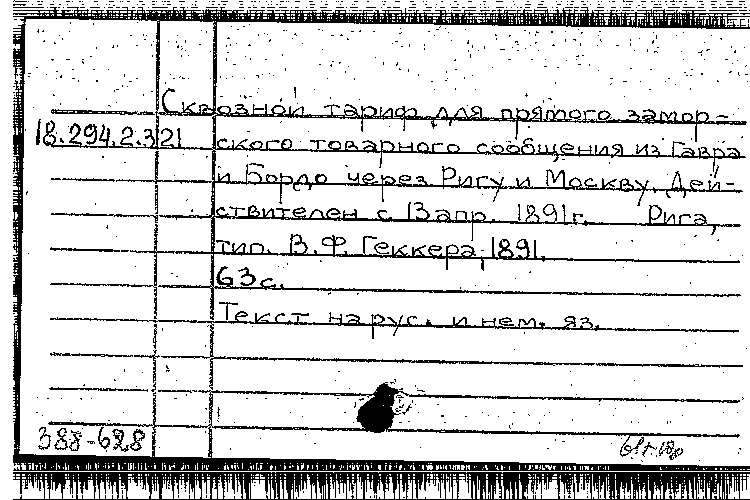 Сквозной тариф для прямого замор-
18.294.2.321 ского товарного сообщения из Гавра
и Бордо через Ригу и Москву. Дей-
ствителен с 13 апр. 1891г. Рига,
тип. В.Ф. Геккера, 1891.
63с.
Текст на рус. и нем. яз.
388-628